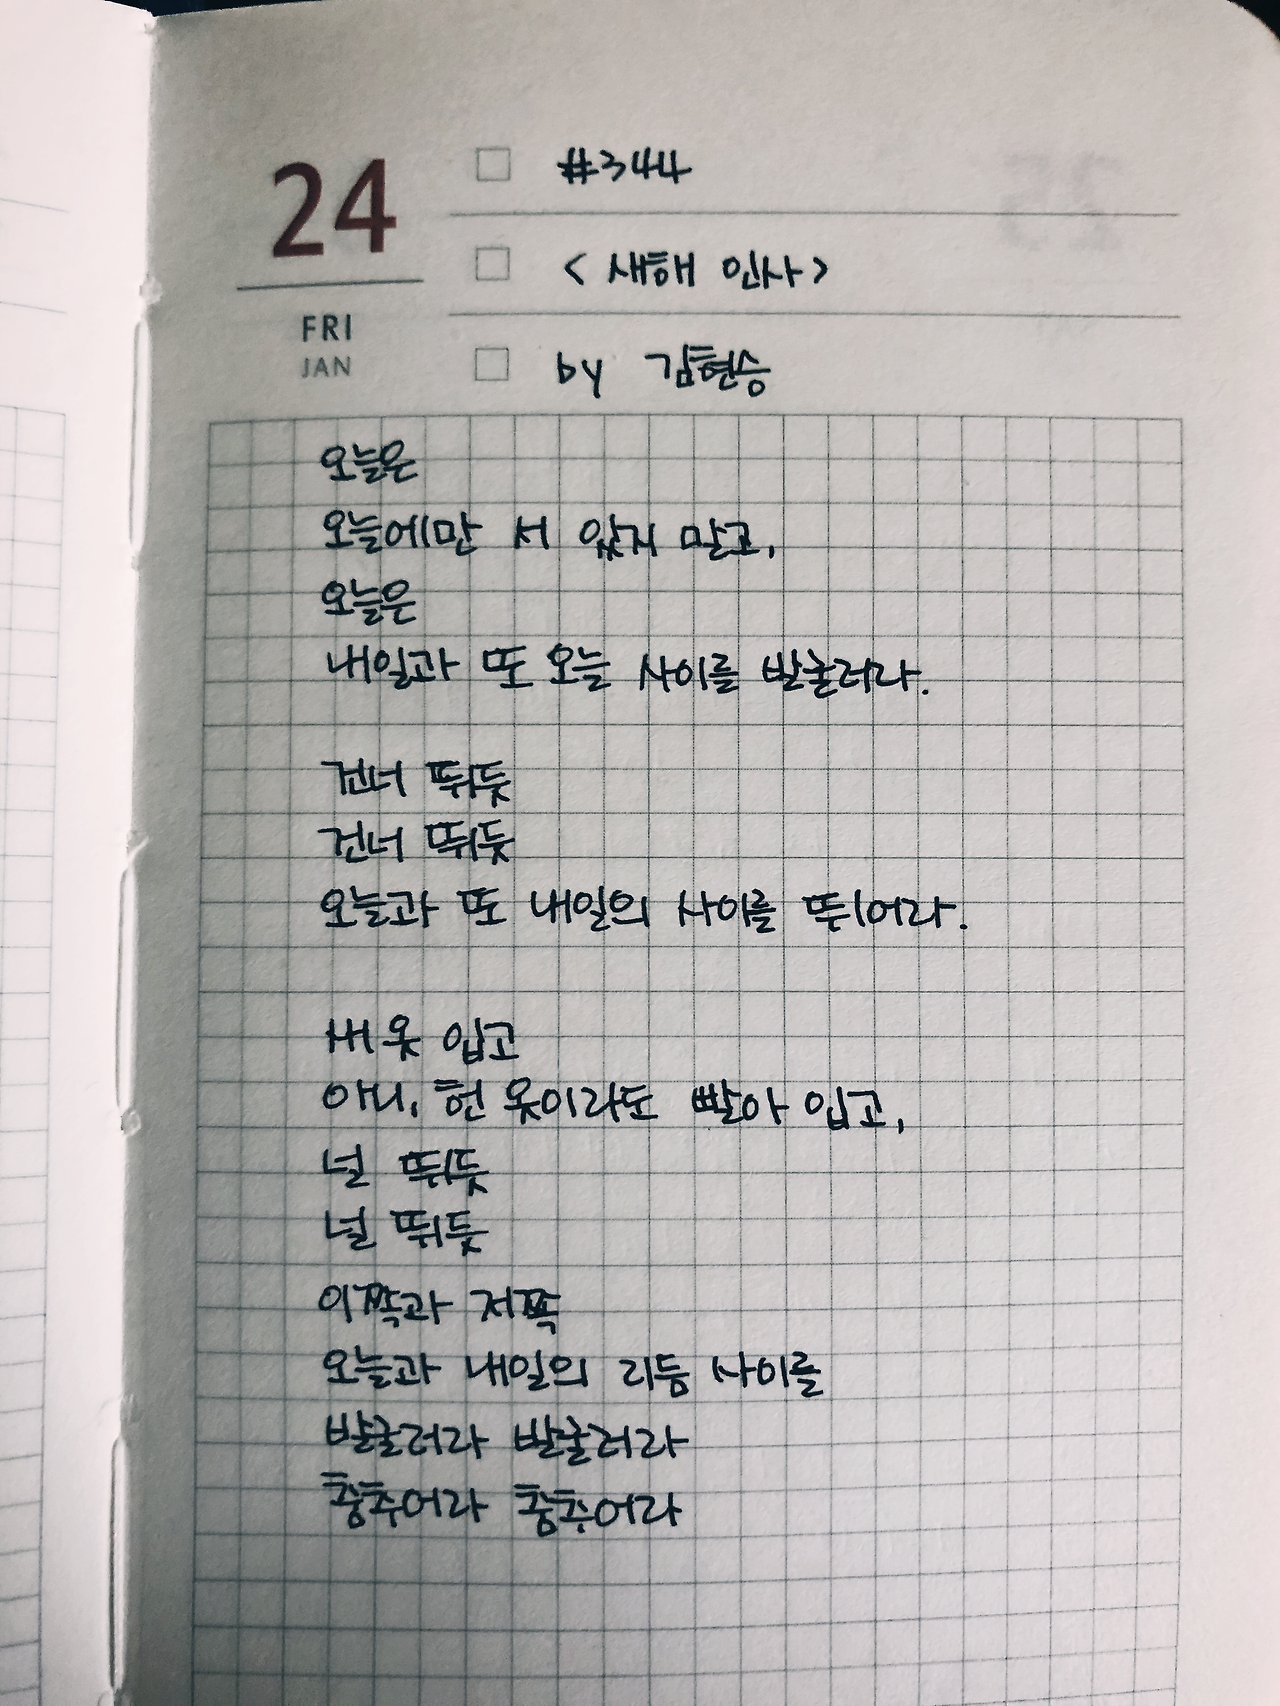 24
FRI
JAN
#344
<새해 인사>
by 김현승
오늘은
오늘에만 서 있지 말고,
오늘은
내일과 또 오늘 사이를 발굴러라.
건너 뛰듯
건너 뛰듯
오늘과 또 내일의 사이를 뛰어라.
새 옷 입고
아니, 헌 옷이라도 빨아 입고,
널 뛰듯
널 뛰듯
이쪽과 저쪽
오늘과 내일의 리듬 사이를
발굴러라 발굴러라
춤추어라 춤추어라